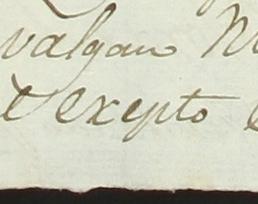 valgan M
t exepto